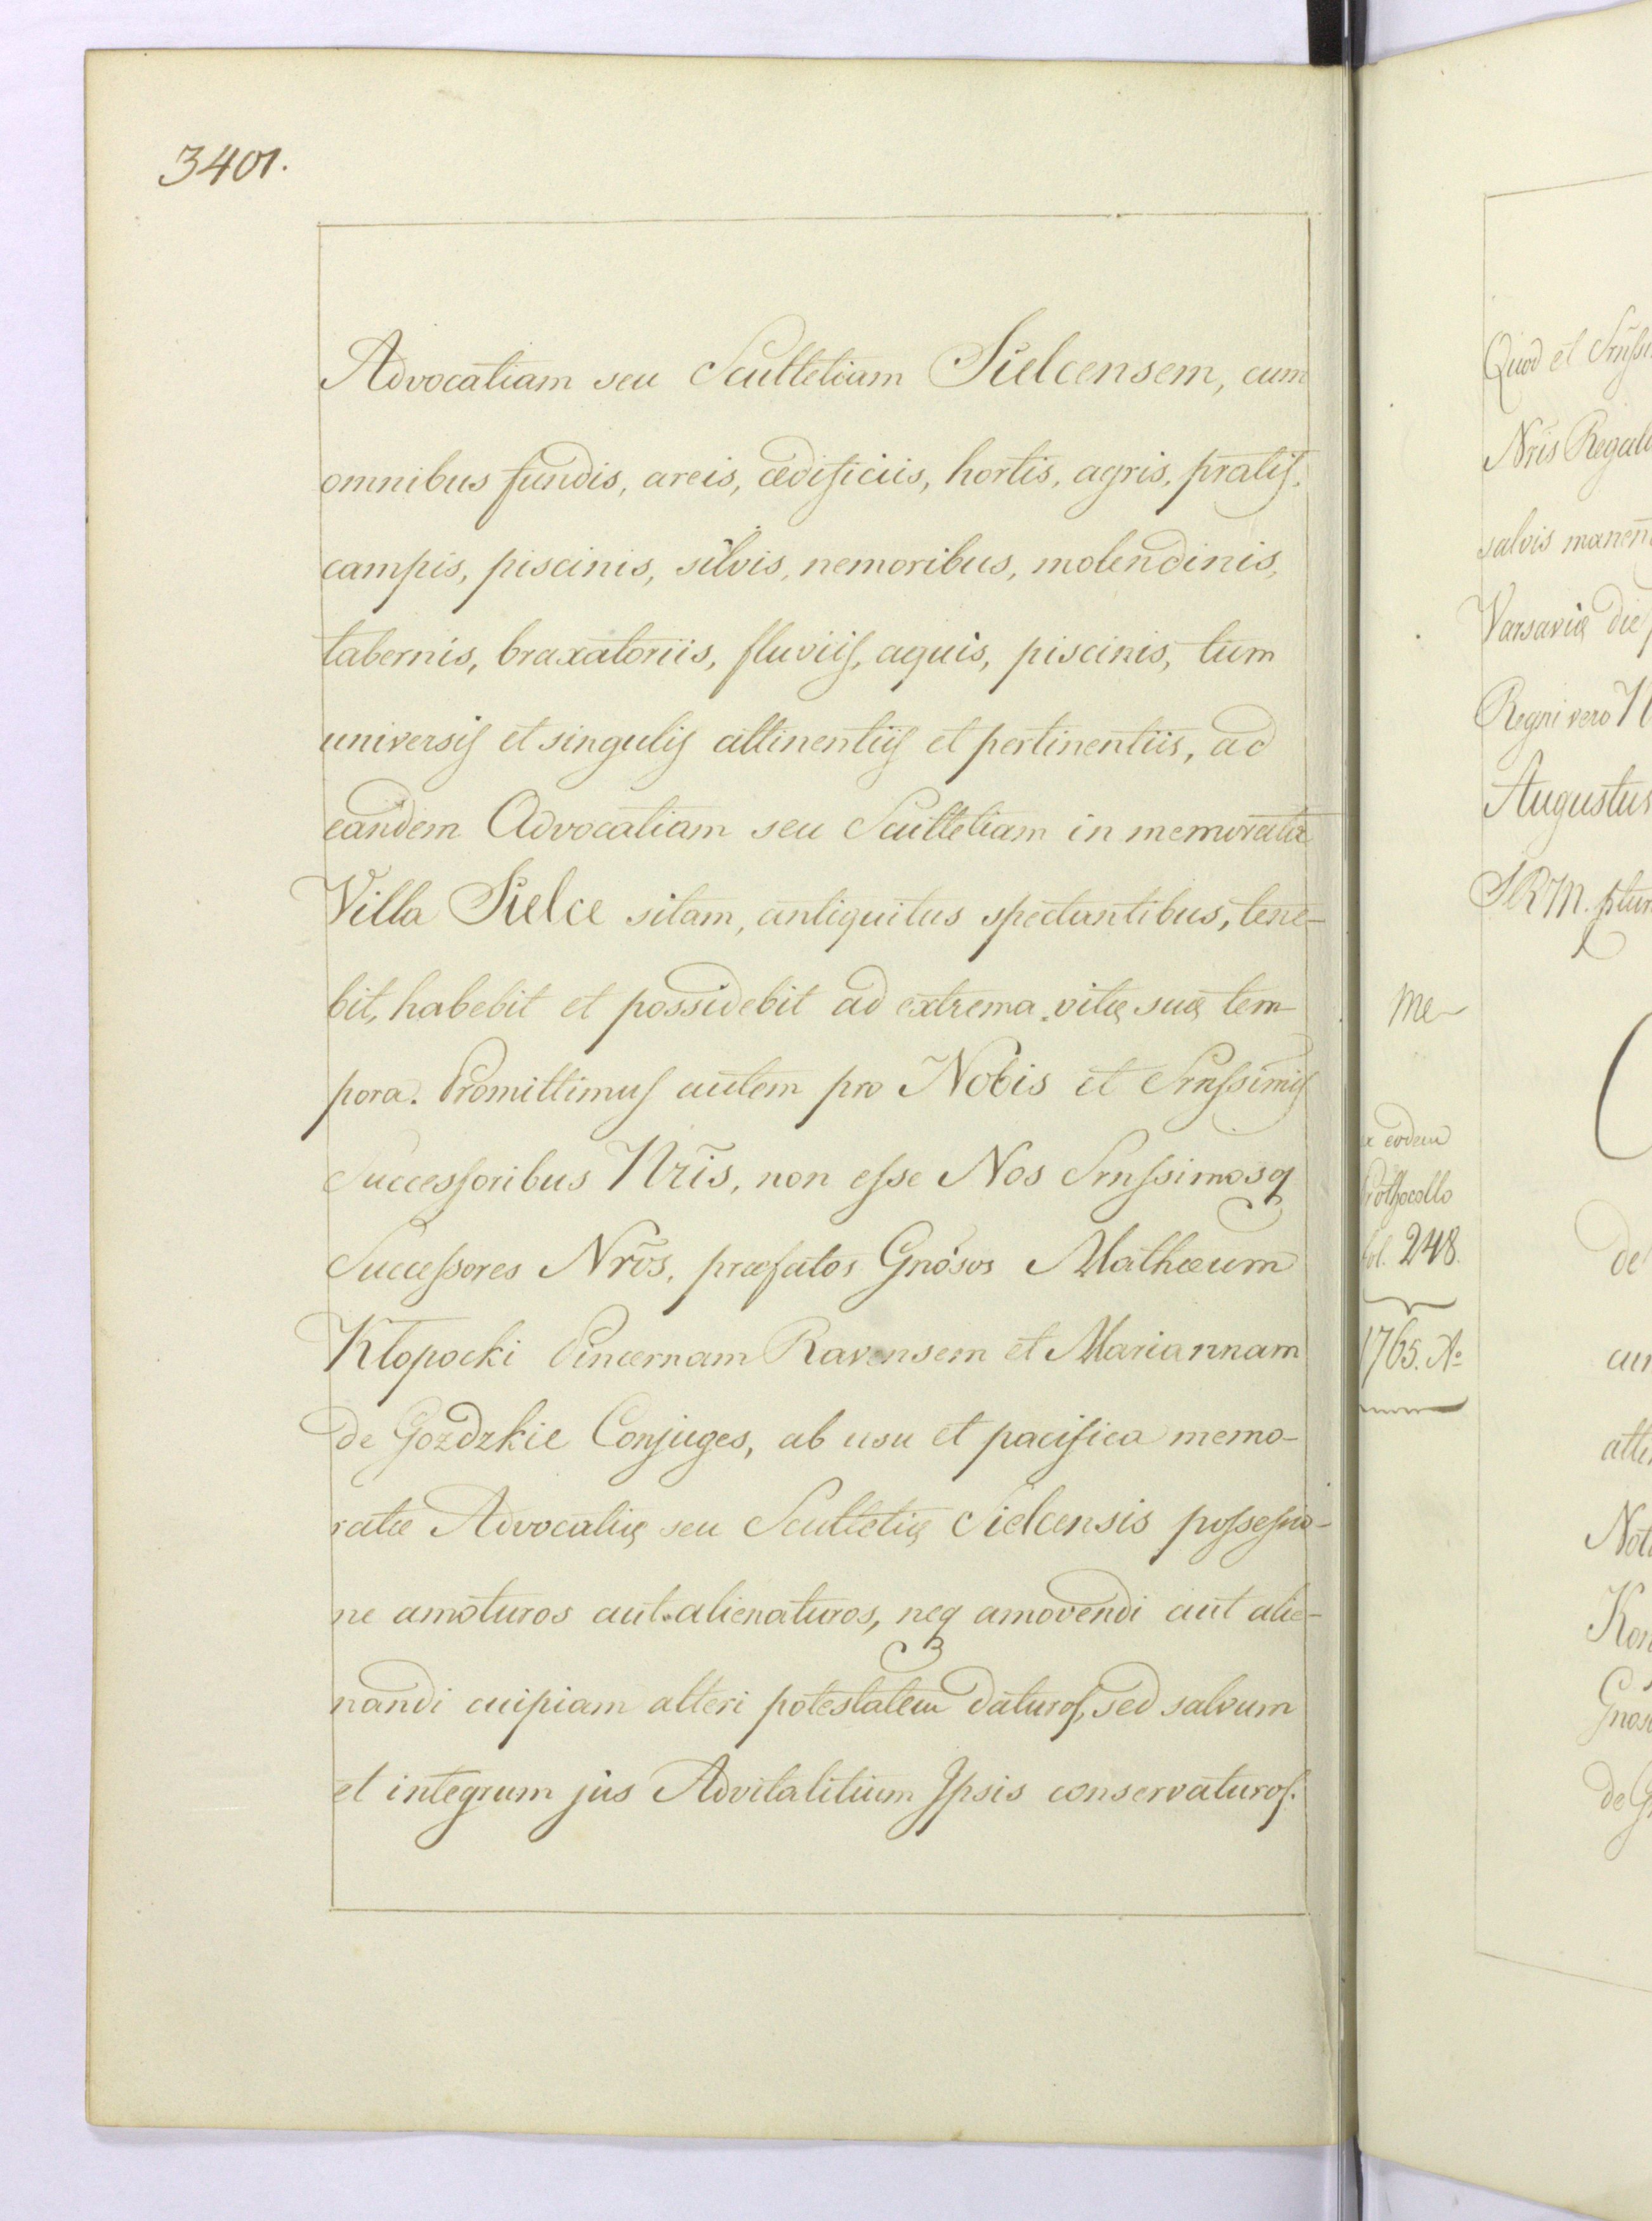 3401.
Advocatiam seu Scultetiam Sielcensem, cum
omnibus fundis, areis, ædificiis, hortis, agris, pratis,
campis, piscinis, silvis, nemoribus, molendinis,
tabernis, braxatoriis, fluviis, aquis, piscinis, tum
universis et singulis attinentiis et pertinentiis, ad
eandem Advocatiam seu Scultetiam in memorata
Villa Sielce sitam, antiquitus spectantibus, tene-
bit, habebit et possidebit ad extrema vitę suę tem-
pora. Promittimus autem pro Nobis et Srnssimis
Successoribus Nr̃is, non esse Nos Srnssimosq
Successores Nr̃os, præfatos Gnosos Mathæum
Kłopocki Pincernam Ravensem et Mariannam
de Gozdzkie Conjuges, ab usu et pacifica memo-
ratæ Advocatię seu Scultetię Sielcensis possessio-
ne amoturos aut alienaturos, neq amovendi aut alie-
nandi cuipiam alteri potestatem daturos, sed salvum
et integrum jus Advitalitium Ipsis conservaturos.
Quod et
Nris
salvis
Varsavię die
Regni vero
Augustus
SRM.
eodem
248.
1765. Aº